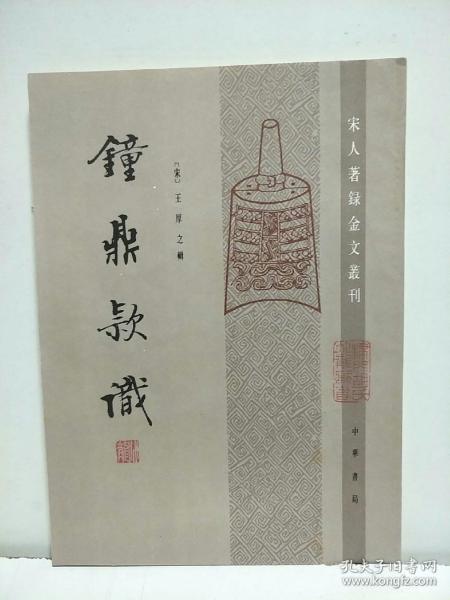 宋人著録金文叢刊
中華書局
〔宋〕王厚之輯
鐘鼎款識
孔夫子旧书网
www.kongfz.com